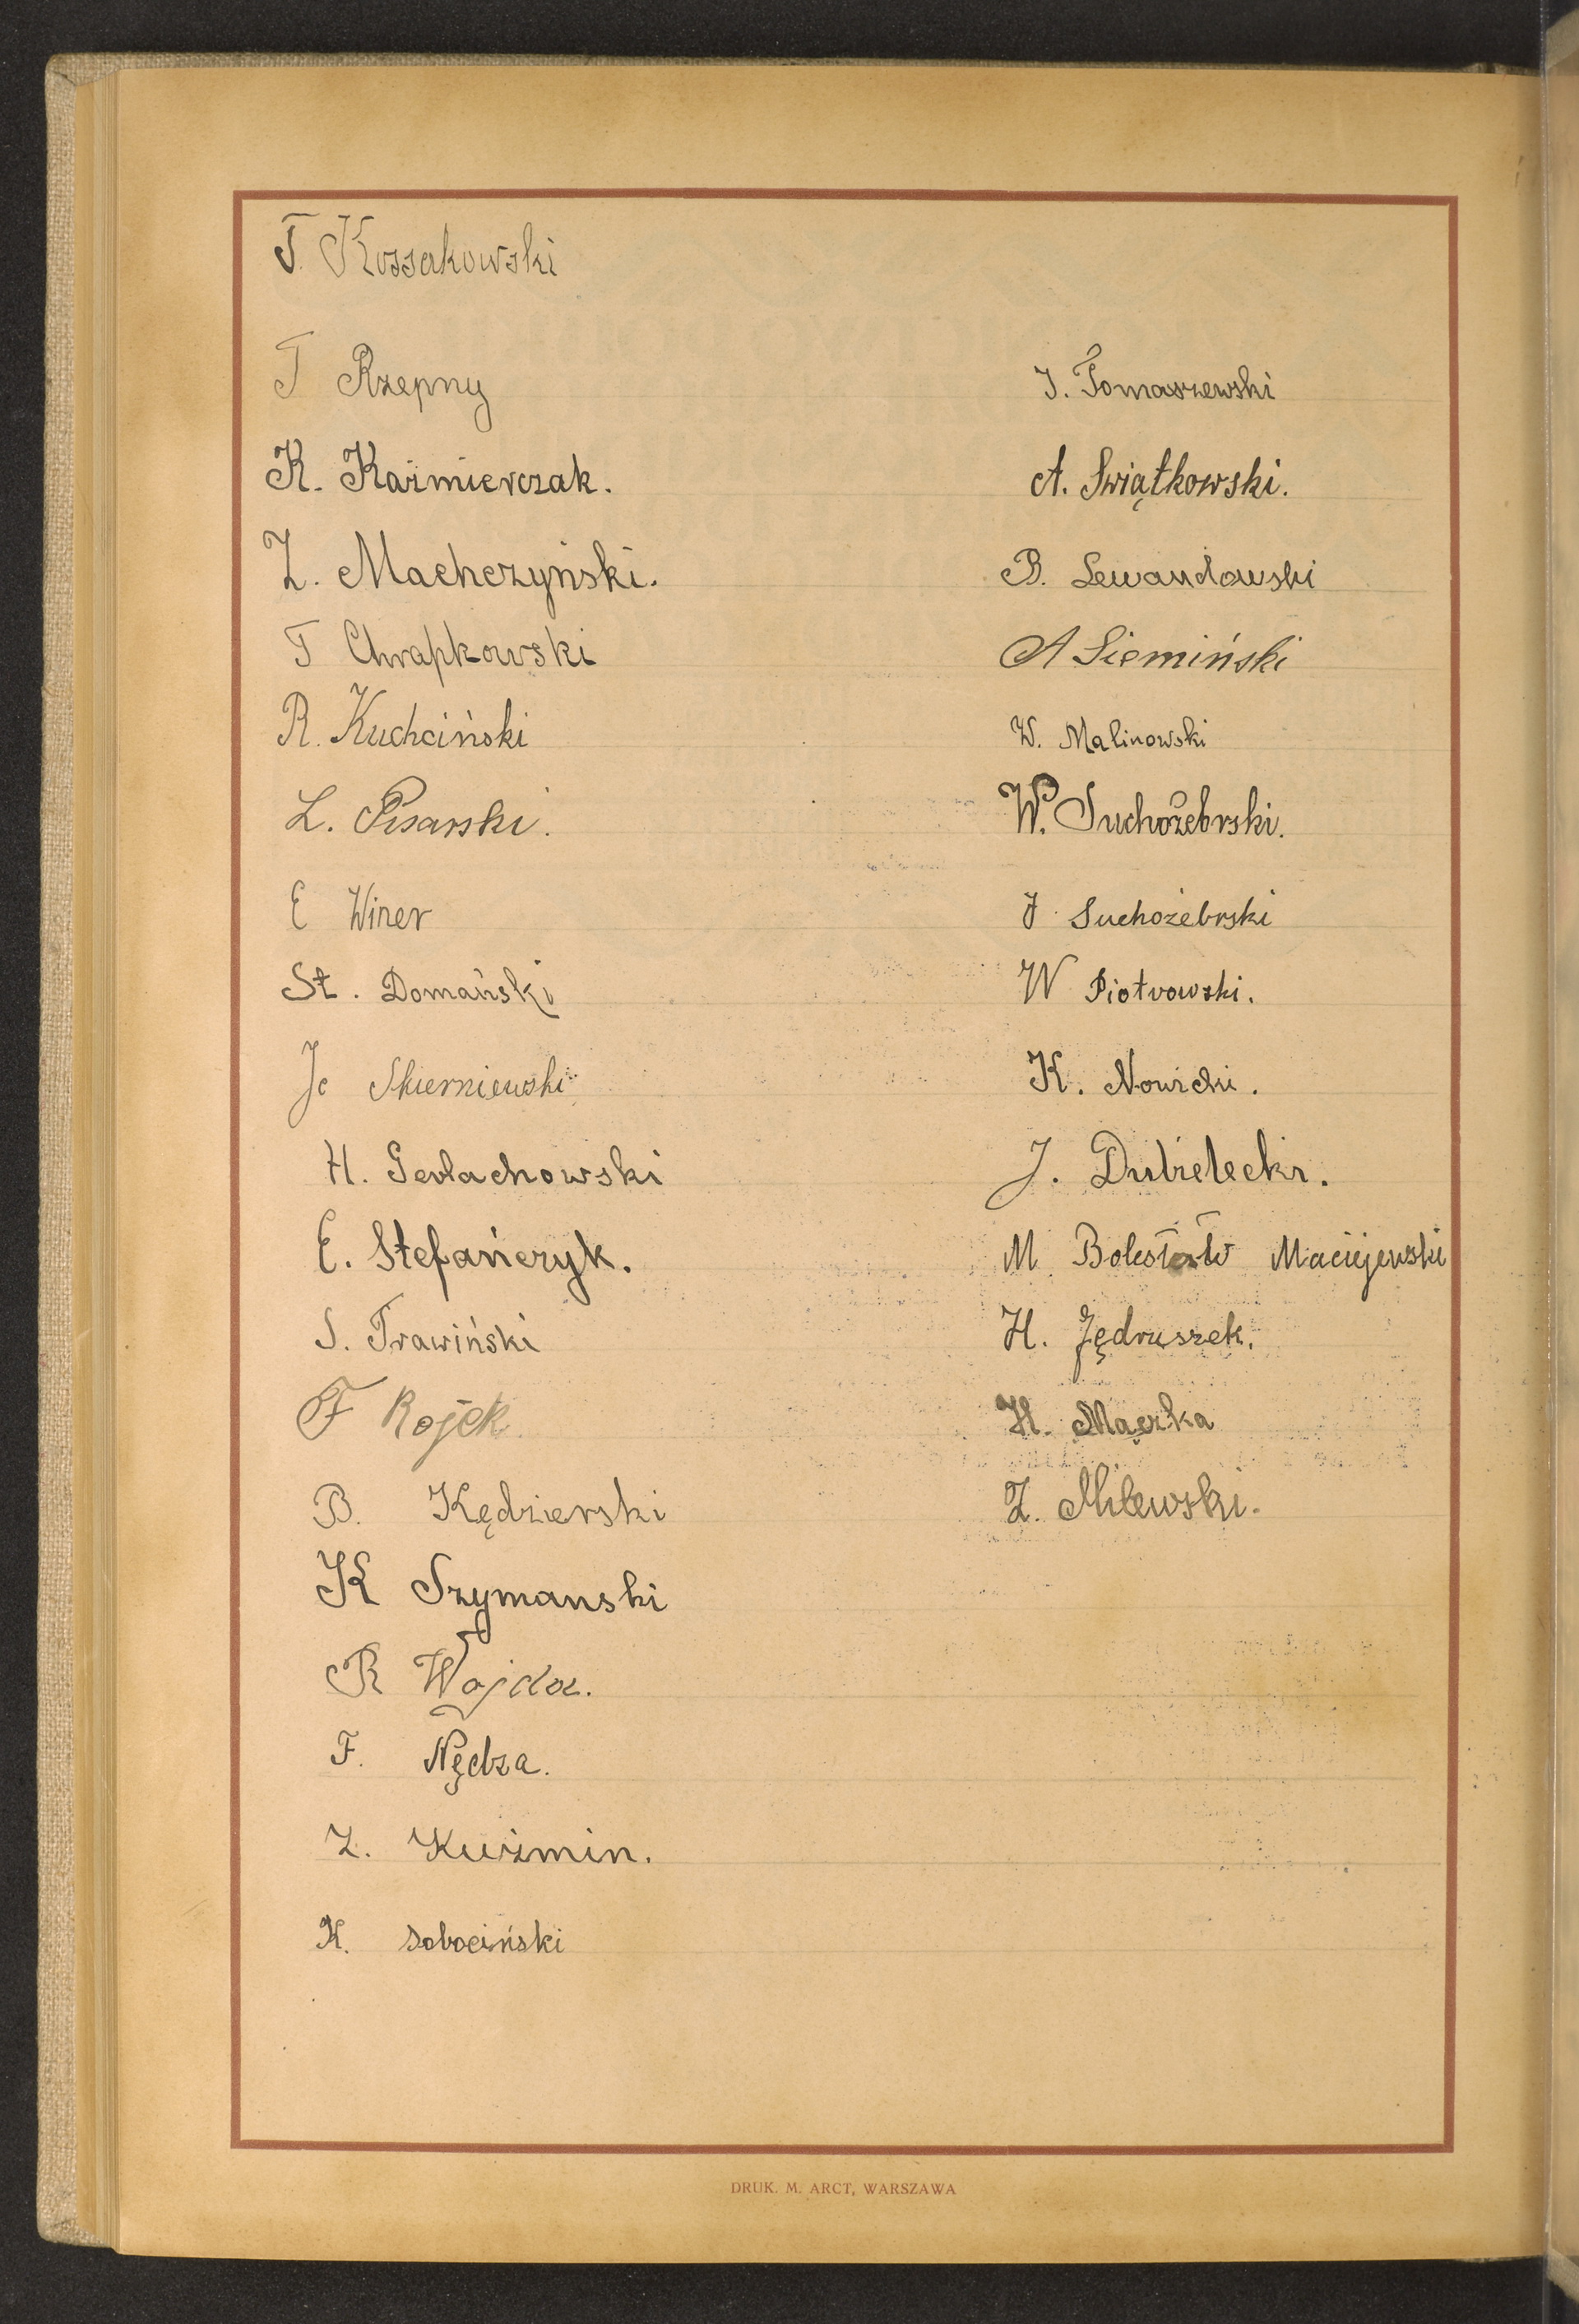 T. Kossakowski
T Rzepny
K. Kaźmierczak.
Z. Machczyński.
T Chrapkowski
R. Kuchciński
L. Pisarski.
E Winer
St. Domański
Je Skierniewski
H. Gerlachowski
E. Stefańczyk.
S. Trawiński
F Rojek.
B. Kędzierski
K Szymanski
R Wojda.
F. Nędza.
Z. Kuźmin.
K. Sobociński
J. Tomaszewski
A. Swiątkowski.
B. Lewandowski
A Siemiński
W. Malinowski
W. Suchożebrski.
J Suchożebrski
W Piotrowski.
K. Nowicki.
J. Dubielecki.
M Bolesław Maciejewski
H. Jędruszek.
H. Mączka
Z. Milewski.
DRUK. M. ARCT, WARSZAWA